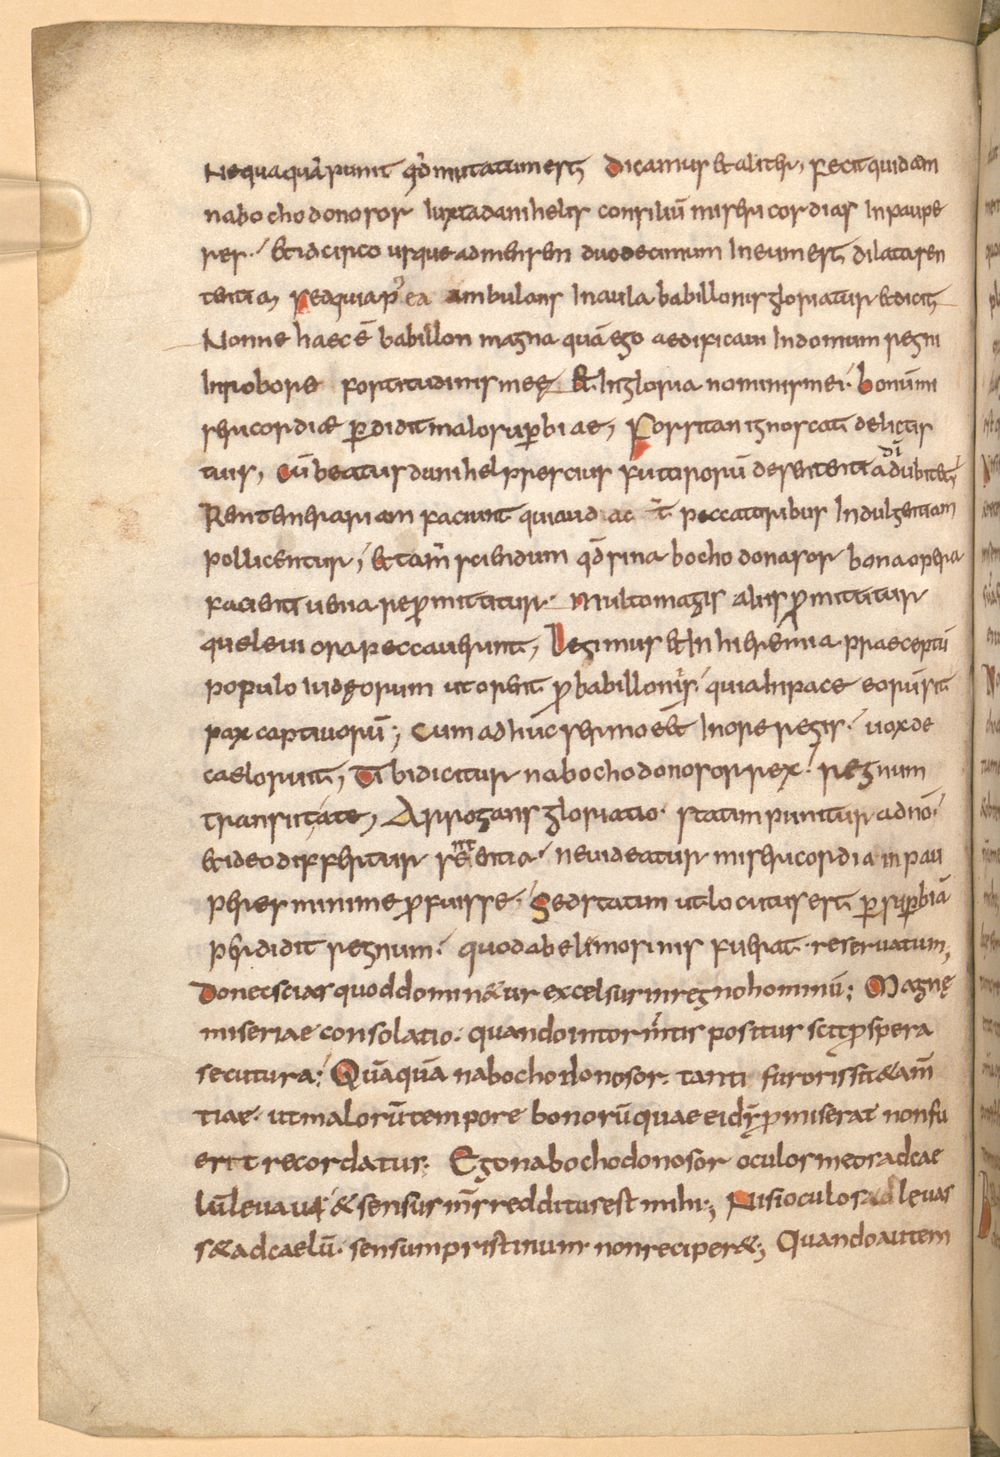 Nequaquā punit qđ mutatum est, Dicamus & alit&, Fecit quidam
nabochodonosor iuxta danihelis consiliū misericordias in paupe
res. Et idcirco usque ad mensen duodecimum in eum est dilata sen
tentia, sed quia p̄ ea ambulans in aula babillonis gloriatur & dicit
Nonne haec ē babillon magna quā ego aedificaui in domum regni
in robore fortitudinis meę &. In gloria nominis mei. bonū mi
sericordiæ perdidit malo superbiae, Forsitan ignoscat delictis
tuis, Cū beatus danihel prescius futurorū de sententia dī dubitet,
Rem temerariam faciunt qui audac t̄ peccatoribus indulgentiam
pollicentur, & tam̄ sciendum qđ si nabochodonasor bona opera
facienti uenia repromittitur. Multo magis aliis promittitur
qui leuiora peccauerunt, Legimus & in hieremia praeceptū
populo iudęorum ut orent pro babillonis. quia in pace eorū sit
pax captiuorū; Cum adhuc sermo eēt in ore regis. uox de
caelo ruit, Tibi dicitur nabochodonosor rex. regnum
transiit a te, Arrogans gloriatio. statim punitur a dnō.
& ideo differitur sententia. ne uideatur misericordia in pau
peres minime profuisse. Sed statim ut locutus est per superbiā
perdidit regnum. quod ab elimosinis fuerat reseruatum,
Donec scias quod domin&ur excelsus in regno hominū; Magnę
miseriae consolatio. quando in tormītis positus scit prospera
secutura; Quāquā nabochodonosor. tanti furoris sit & am̄
tiae. ut malorū tempore bonorū quae ei dn̄s promiserat non fu
erit recordatus. Ego nabochodonosor oculos meos ad cae
lū leuaui & sensus m̄s redditus est mihi; Nisi oculos ad leuas
s& ad caelū. sensum pristinum non reciper&; Quando autem